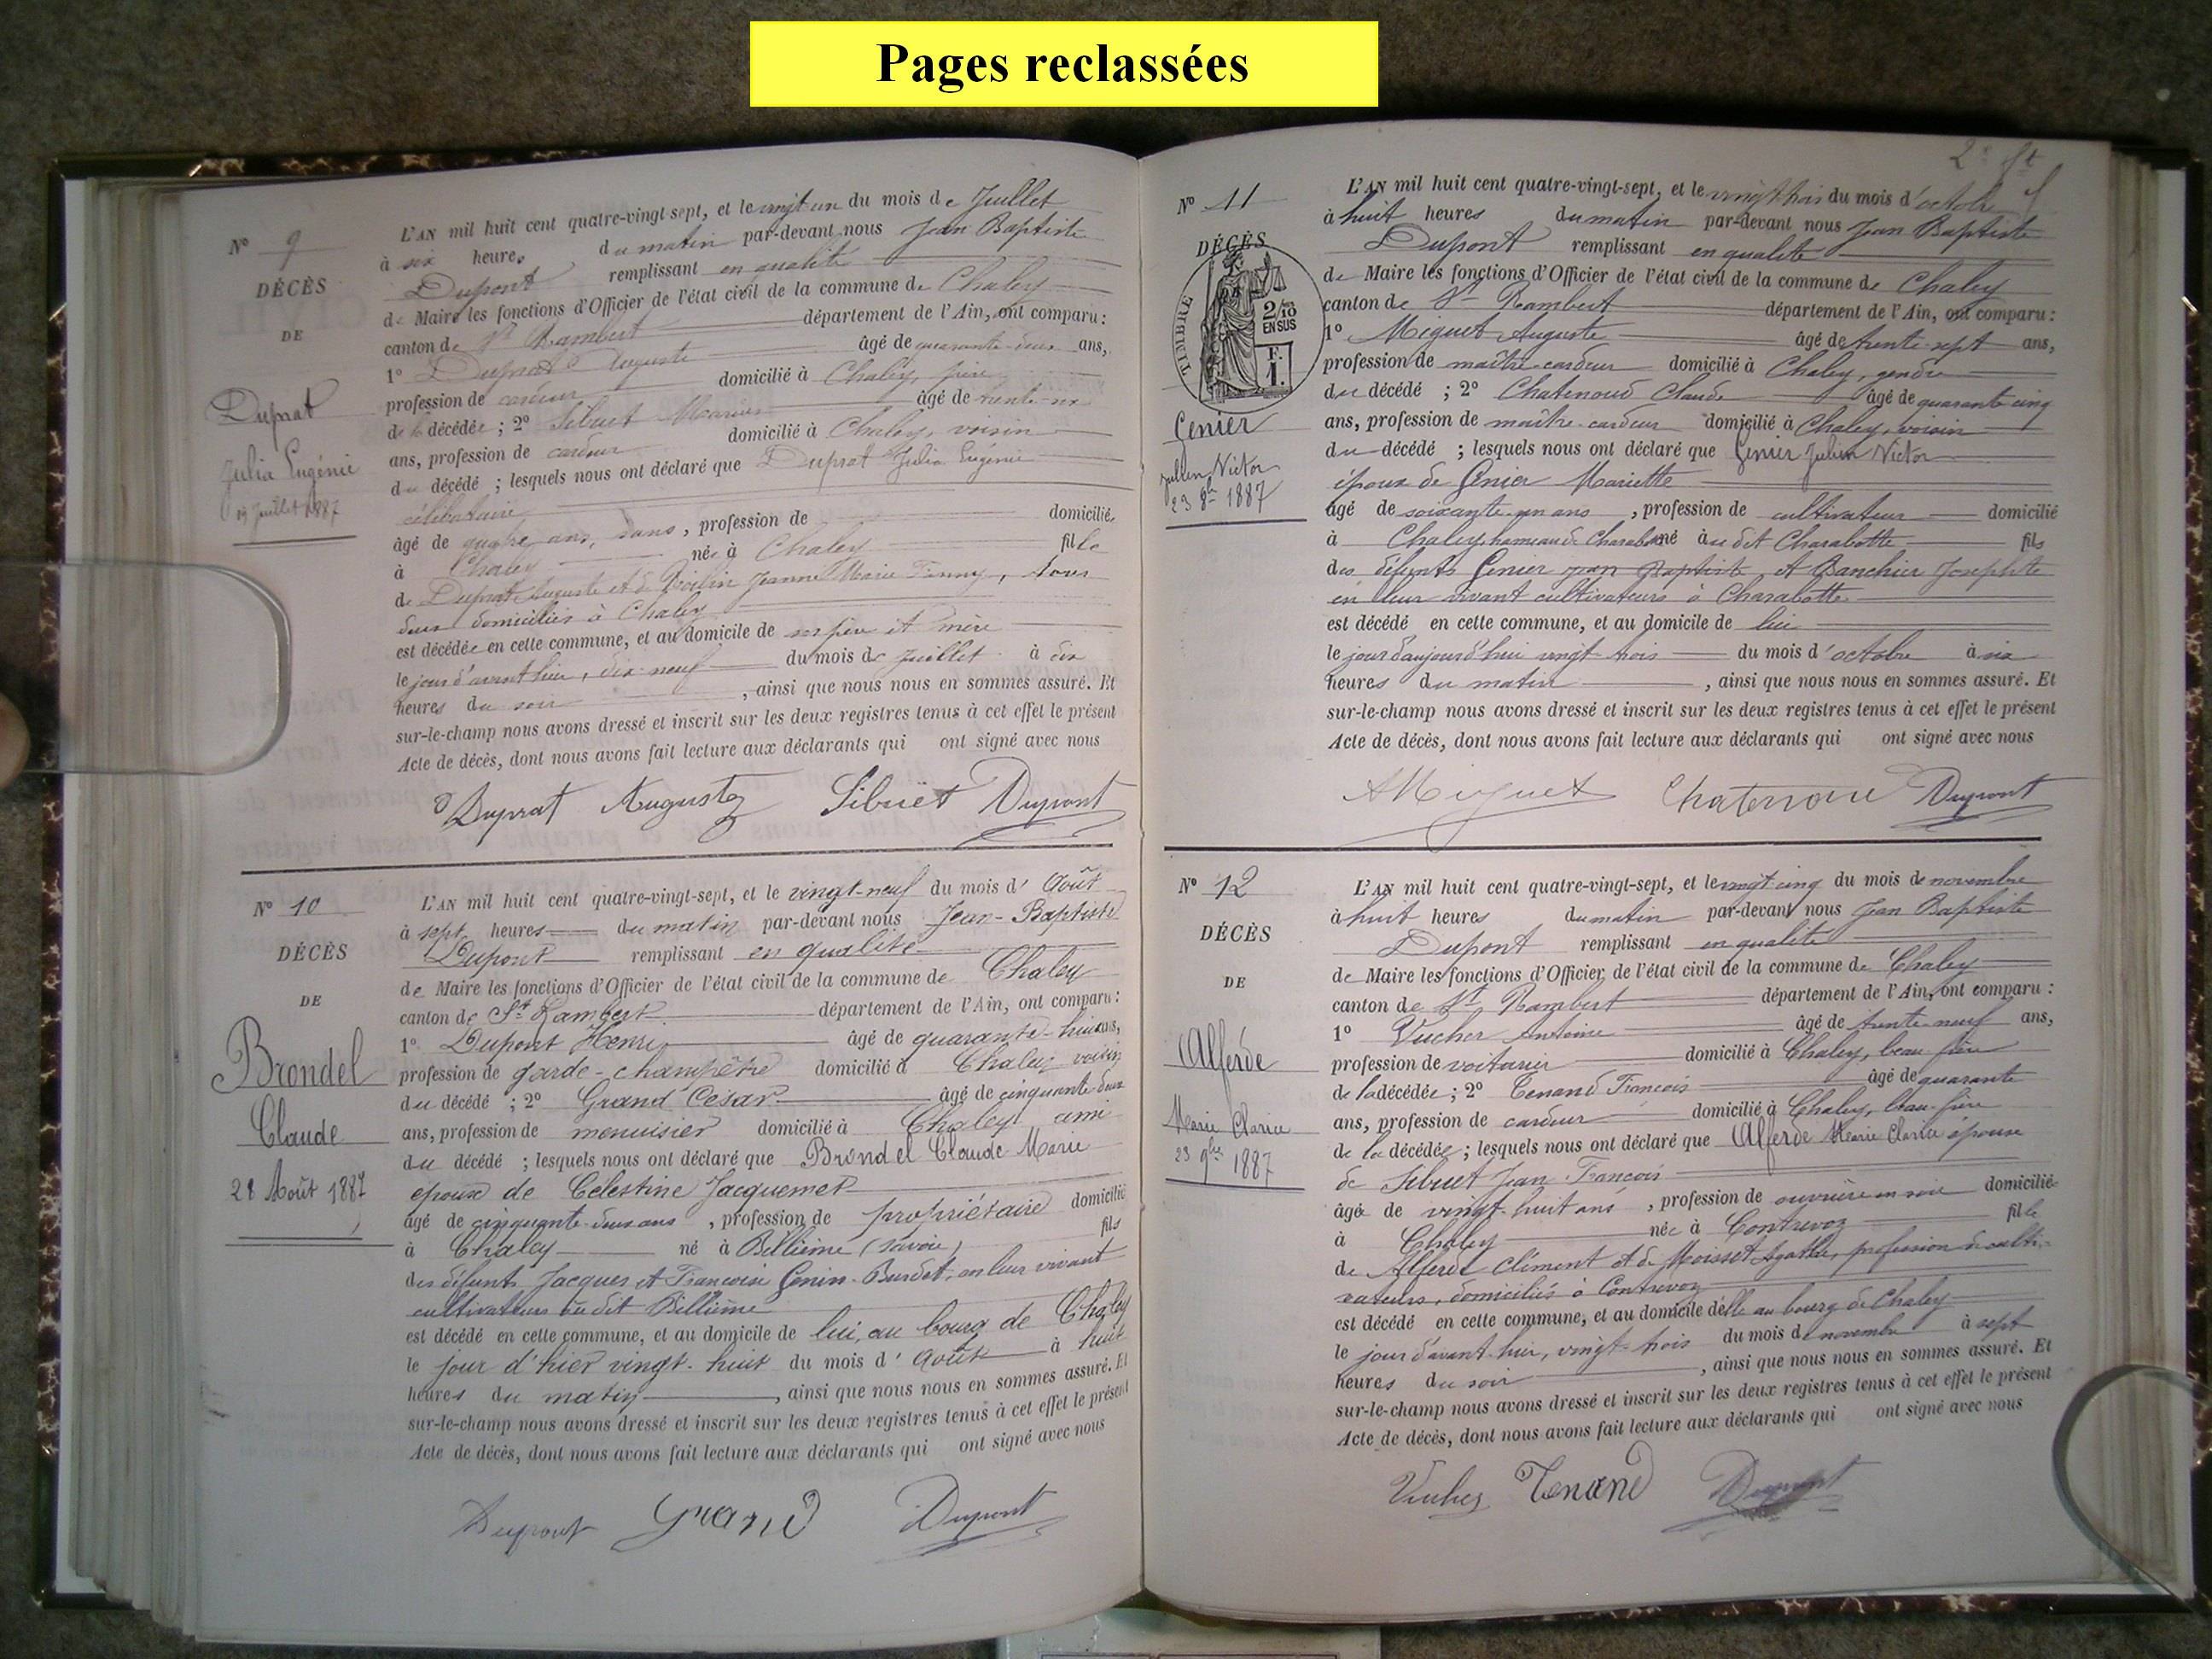 Pages reclassées
Nº 9
DÉCÈS
DE
Duprat
Julia Eugénie
19 Juillet 1887
L'AN mil huit cent quatre-vingt-sept, et le vingt-un du mois de Juillet
à six heures du matin par-devant nous Jean Baptiste
Dupont remplissant en qualité
de Maire les fonctions d'Officier de l'état civil de la commune de Chaley
canton de St Rambert département de l'Ain, ont comparu :
1º Duprat Auguste âgé de quarante-deux ans,
profession de cardeur domicilié à Chaley, père
de la décédée ; 2º Sibuet Marius âgé de trente-six
ans, profession de cardeur domicilié à Chaley, voisin
du décédé ; lesquels nous ont déclaré que Duprat Julia Eugénie
célibataire
âgé de quatre ans, sans, profession de domicilié
à Chaley née à Chaley fille
de Duprat Auguste et de Jeanne Marie Fanny, tous
deux domiciliés à Chaley
est décédée en cette commune, et au domicile de ses père et mère
le jour d'avant hier, dix-neuf du mois de Juillet à dix
heures du soir, ainsi que nous nous en sommes assuré. Et
sur-le-champ nous avons dressé et inscrit sur les deux registres tenus à cet effet le présent
Acte de décès, dont nous avons fait lecture aux déclarants qui ont signé avec nous
Duprat Auguste Sibuet Dupont
Nº 10
DÉCÈS
DE
Brondel
Claude
28 Août 1887
L'AN mil huit cent quatre-vingt-sept, et le vingt-neuf du mois d'Août
à sept heures du matin par-devant nous Jean-Baptiste
Dupont remplissant en qualité
de Maire les fonctions d'Officier de l'état civil de la commune de Chaley
canton de St Rambert département de l'Ain, ont comparu :
1º Dupont Henri âgé de quarante-huit ans,
profession de garde-champêtre domicilié à Chaley voisin
du décédé ; 2º Grand César âgé de cinquante deux
ans, profession de menuisier domicilié à Chaley ami
du décédé ; lesquels nous ont déclaré que Brondel Claude Marie
epoux de Celestine Jacquemet
âgé de cinquante-deux ans, profession de propriétaire domicilié
à Chaley né à Billième (Savoie) fils
des défunts Jacques et Françoise Genin-Burdet, en leur vivant
cultivateurs au dit Billième
est décédé en cette commune, et au domicile de lui, au bourg de Chaley
le jour d'hier vingt-huit du mois d'Août à huit
heures du matin, ainsi que nous nous en sommes assuré. Et
sur-le-champ nous avons dressé et inscrit sur les deux registres tenus à cet effet le présent
Acte de décès, dont nous avons fait lecture aux déclarants qui ont signé avec nous
Dupont Grand Dupont
2e ft
Nº 11
DÉCÈS
TIMBRE
2/10
EN SUS
F.
1.
Genier
Julien Victor
23 8bre 1887
L'AN mil huit cent quatre-vingt-sept, et le vingt trois du mois d'octobre
à huit heures du matin par-devant nous Jean Baptiste
Dupont remplissant en qualité
de Maire les fonctions d'Officier de l'état civil de la commune de Chaley
canton de St Rambert département de l'Ain, ont comparu :
1º Miguet Auguste âgé de trente-sept ans,
profession de maître-cardeur domicilié à Chaley, gendre
du décédé ; 2º Chatenoud Claude âgé de quarante cinq
ans, profession de maître-cardeur domicilié à Chaley, voisin
du décédé ; lesquels nous ont déclaré que Genier Julien Victor
époux de Genier Mariette
âgé de soixante-un ans, profession de cultivateur domicilié
à Chaley, hameau de Charabotte né au dit Charabotte fils
des défunts Genier Jean Baptiste, et Banchier Josephte
en leur vivant cultivateurs à Charabotte
est décédé en cette commune, et au domicile de lui
le jour d'aujourd'hui vingt-trois du mois d'octobre à six
heures du matin, ainsi que nous nous en sommes assuré. Et
sur-le-champ nous avons dressé et inscrit sur les deux registres tenus à cet effet le présent
Acte de décès, dont nous avons fait lecture aux déclarants qui ont signé avec nous
AMiguet Chatenoud Dupont
Nº 12
DÉCÈS
DE
Alferde
Marie Clarice
23 9bre 1887
L'AN mil huit cent quatre-vingt-sept, et le vingt cinq du mois de novembre
à huit heures du matin par-devant nous Jean Baptiste
Dupont remplissant en qualité
de Maire les fonctions d'Officier de l'état civil de la commune de Chaley
canton de St Rambert département de l'Ain, ont comparu :
1º Vucher Antoine âgé de trente-neuf ans,
profession de voiturier domicilié à Chaley, beau frère
de la décédée ; 2º Tenand François âgé de quarante
ans, profession de cardeur domicilié à Chaley, beau-frère
de la décédée ; lesquels nous ont déclaré que Alferde Marie Clarice épouse
de Sibuet Jean François
âgée de vingt-huit ans, profession de ouvrière en soie domiciliée
à Chaley née à Contrevoz fille
de Alferde Clément et de Moisset Agathe, profession de culti-
vateurs, domiciliés à Contrevoz
est décédé en cette commune, et au domicile d'elle au bourg de Chaley
le jour d'avant-hier, vingt-trois du mois de novembre à sept
heures du soir, ainsi que nous nous en sommes assuré. Et
sur-le-champ nous avons dressé et inscrit sur les deux registres tenus à cet effet le présent
Acte de décès, dont nous avons fait lecture aux déclarants qui ont signé avec nous
Vucher Tenand Dupont